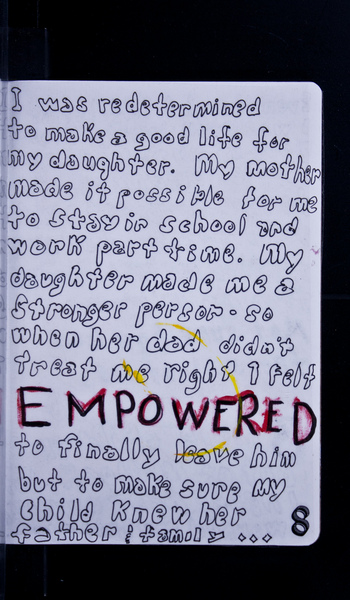 I was redetermined
to make a good life for
my daughter. My mother
made it possible for me
to stay in school and
work part time. My
daughter made me a
stronger person - so
when her dad didn't
treat me right I felt
EMPOWERED
to finally leave him
but to make sure my
child knew her
father & family ...
8